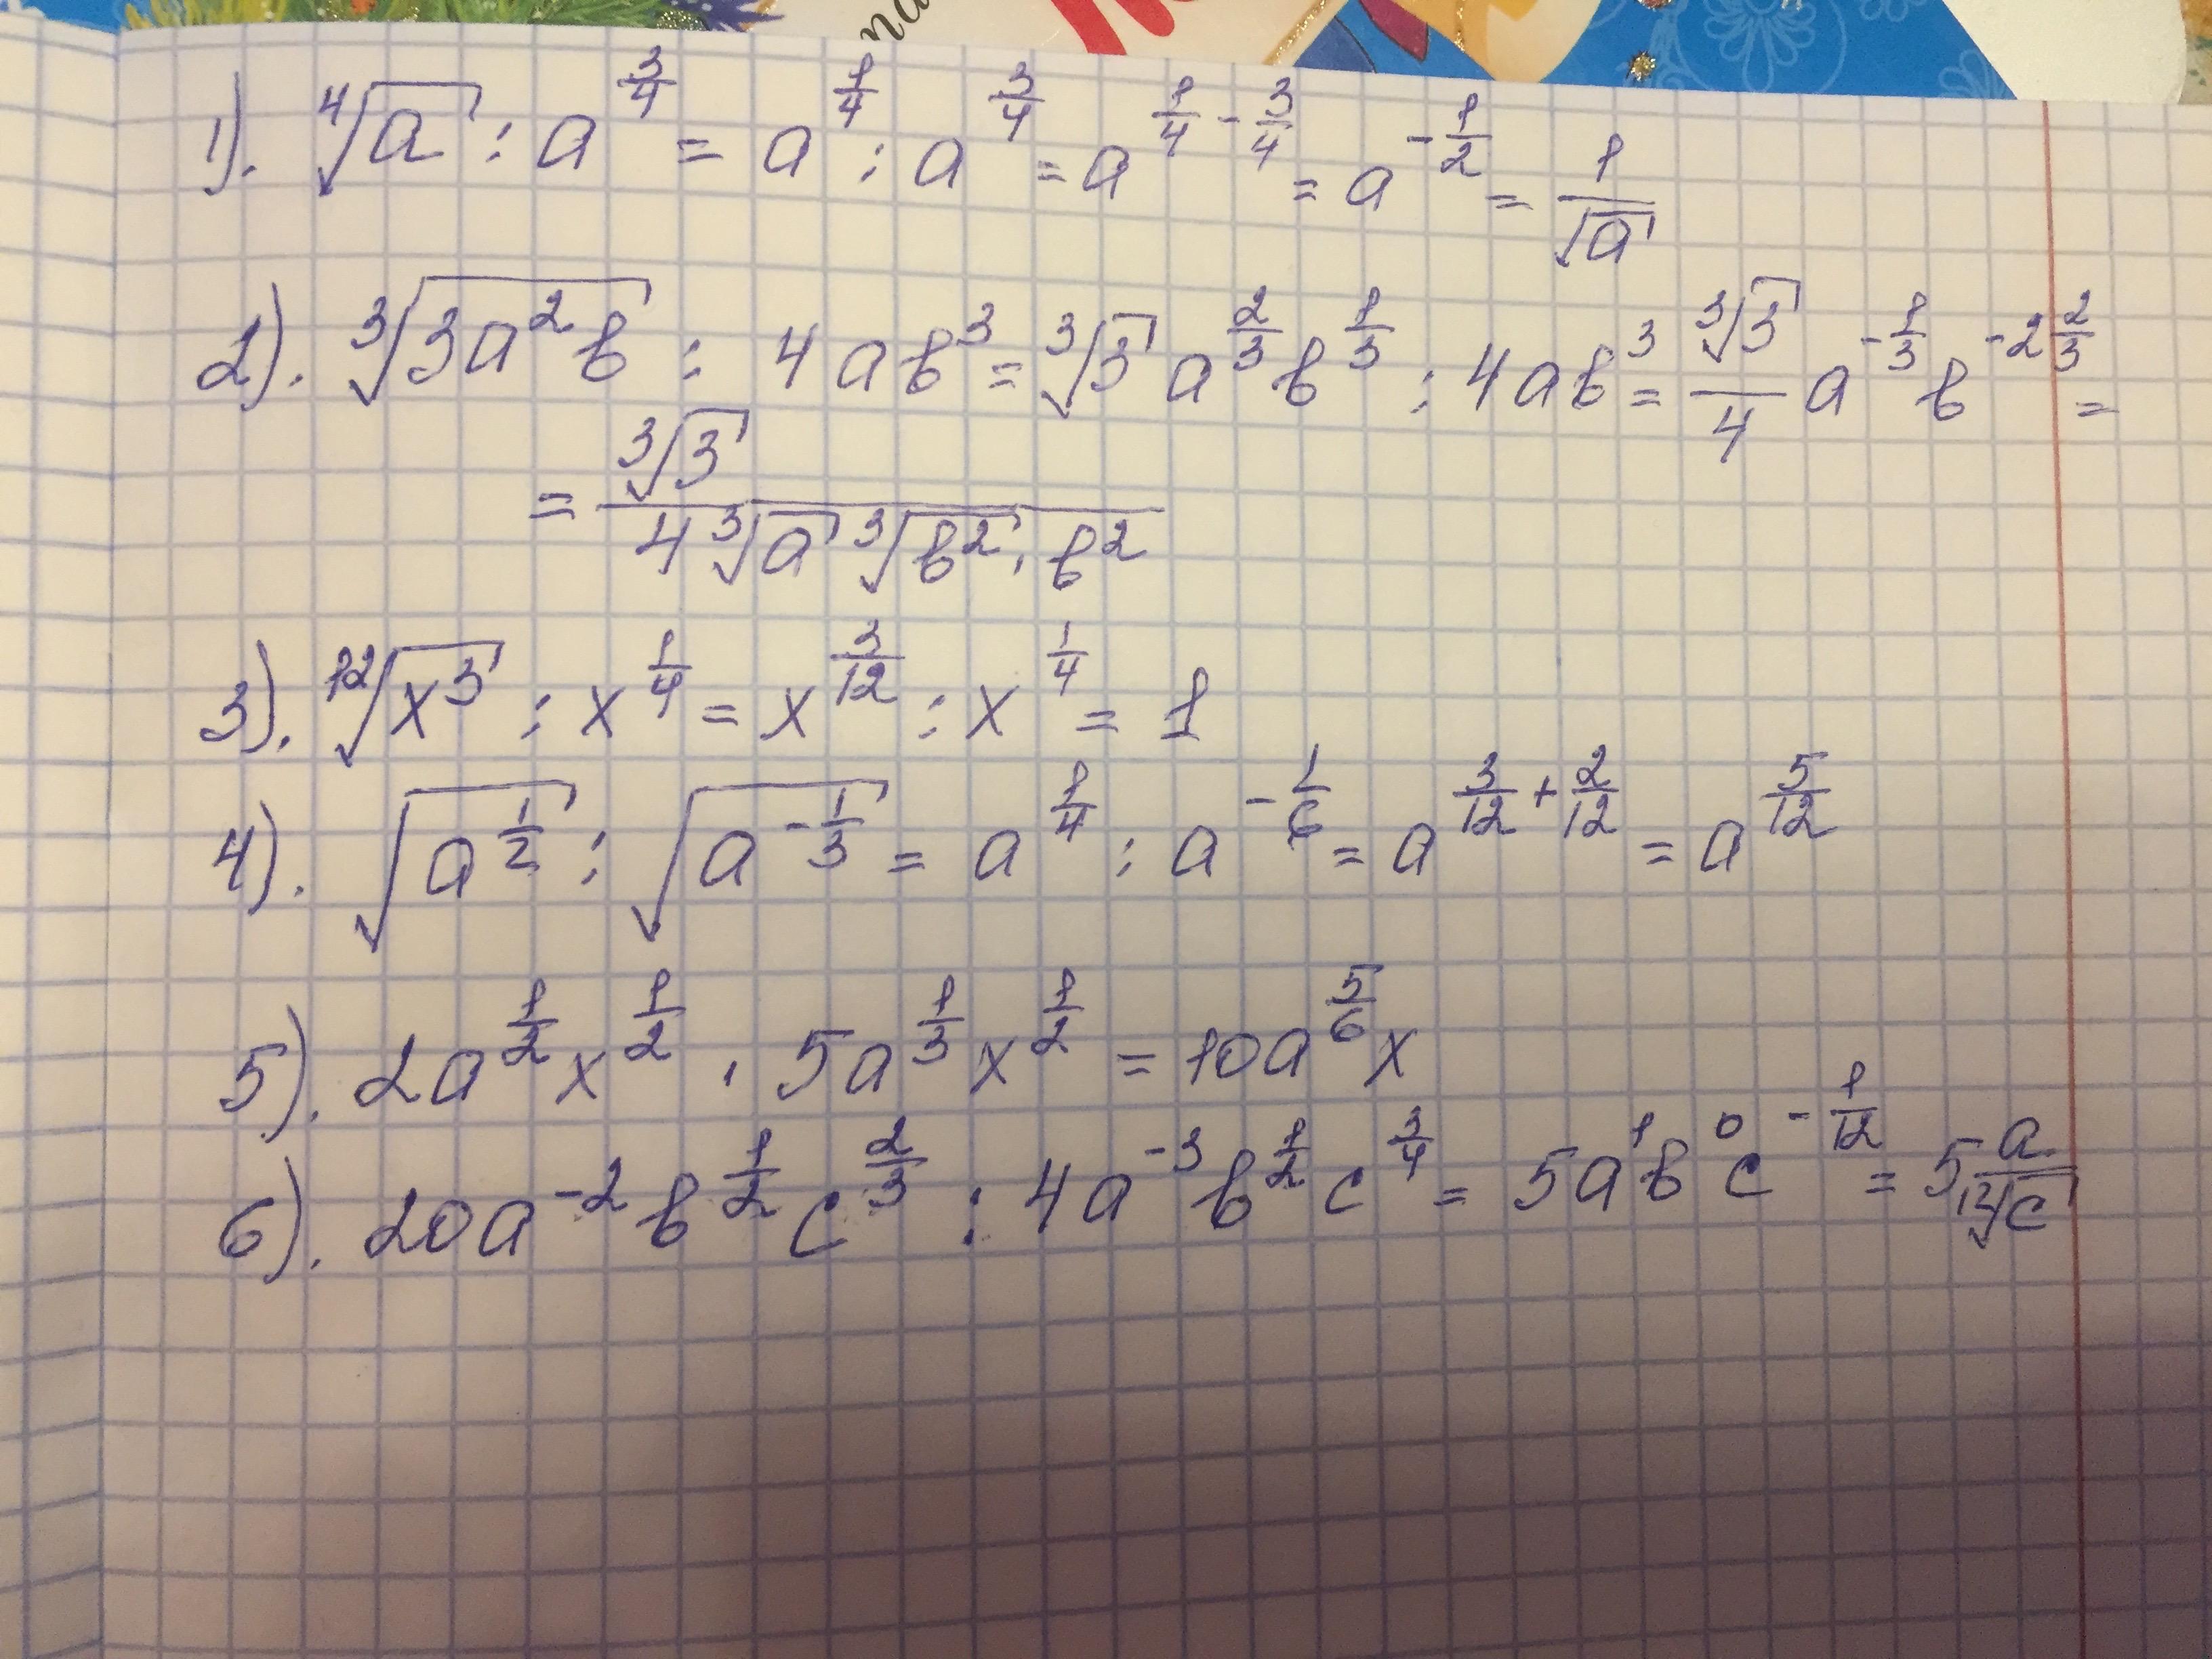 на
1). ⁴√a : a^(3/4) = a^(1/4) : a^(3/4) = a^(1/4 - 3/4) = a^(-1/2) = 1/√a
2). ³√(3a²b) : 4ab³ = ³√3 a^(2/3) b^(1/3) : 4ab³ = ³√3/4 a^(-1/3) b^(-2 2/3) =
= ³√3/(4 ³√a ³√(b²) · b²)
3). ¹²√(x³) : x^(1/4) = x^(3/12) : x^(1/4) = 1
4). √(a^(1/2)) : √(a^(-1/3)) = a^(1/4) : a^(-1/6) = a^(3/12 + 2/12) = a^(5/12)
5). 2a^(1/2) x^(1/2) · 5a^(1/3) x^(1/2) = 10a^(5/6) x
6). 20a^(-2) b^(1/2) c^(2/3) : 4a^(-3) b^(1/2) c^(3/4) = 5a¹b⁰c^(-1/12) = 5 a/¹²√c